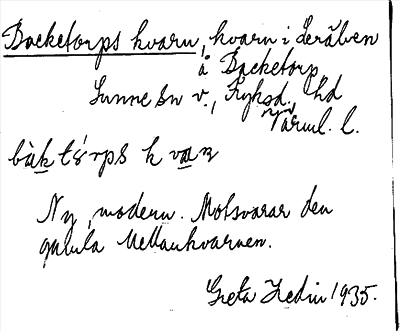 Backetorps kvarn, kvarn i Lerälven
å Backetorp
Sunne sn v., Fryksd. hd
Värml. l.
bàk tórps kvan
Ny, modern. Motsvarar den
gamla Mellankvarnen.
Greta Hedin 1935.